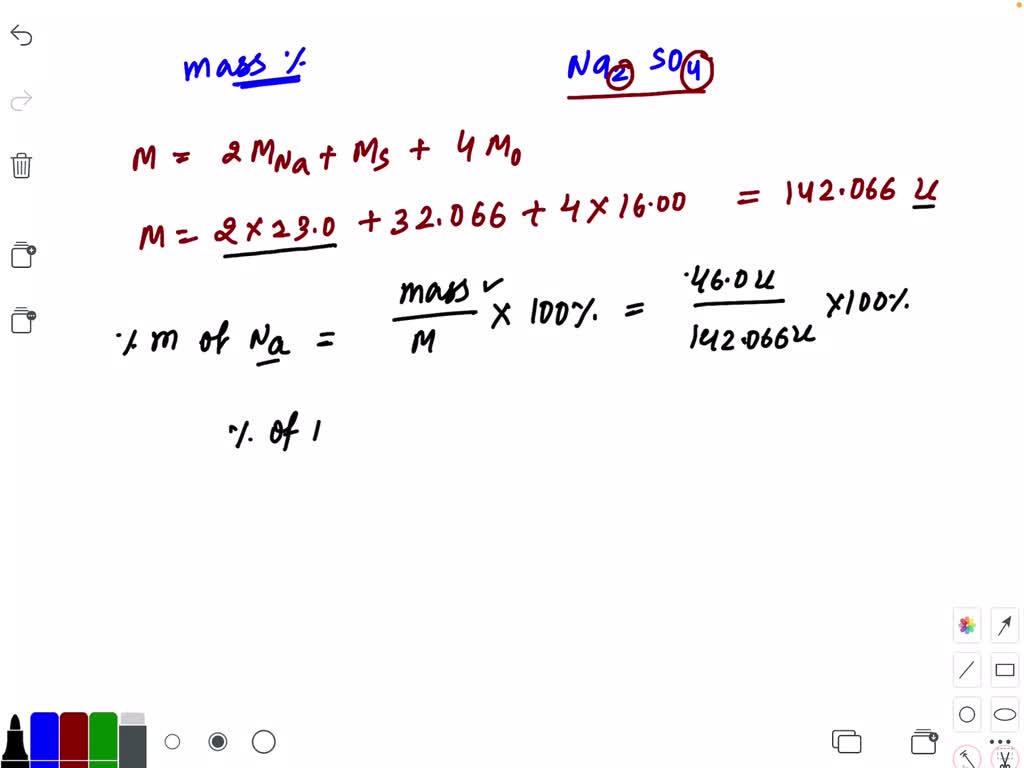 mass %
Na2 SO4
M = 2 MNa + Ms + 4 Mo
M = 2 × 23.0 + 32.066 + 4 × 16.00 = 142.066 u
% m of Na = mass/M × 100% = 46.0u/142.066u × 100%
% of 1